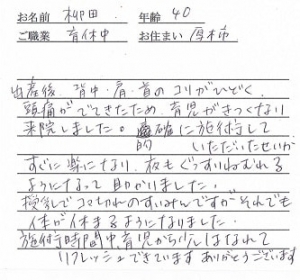 お名前 柳田 年齢 40
ご職業 育休中 お住まい 厚木市
出産後、背中・肩・首のコリがひどく、
頭痛がでてきたため、育児がきつくなり
来院しました。適確に施術して
的 いただいたせいか
すぐに楽になり、夜もぐっすりねむれる
ようになって助かりました。
授乳でコマ切れのすいみんですがそれでも
体が休まるようになりました。
施術時間中育児から少しはなれて
リフレッシュできています ありがとうございます